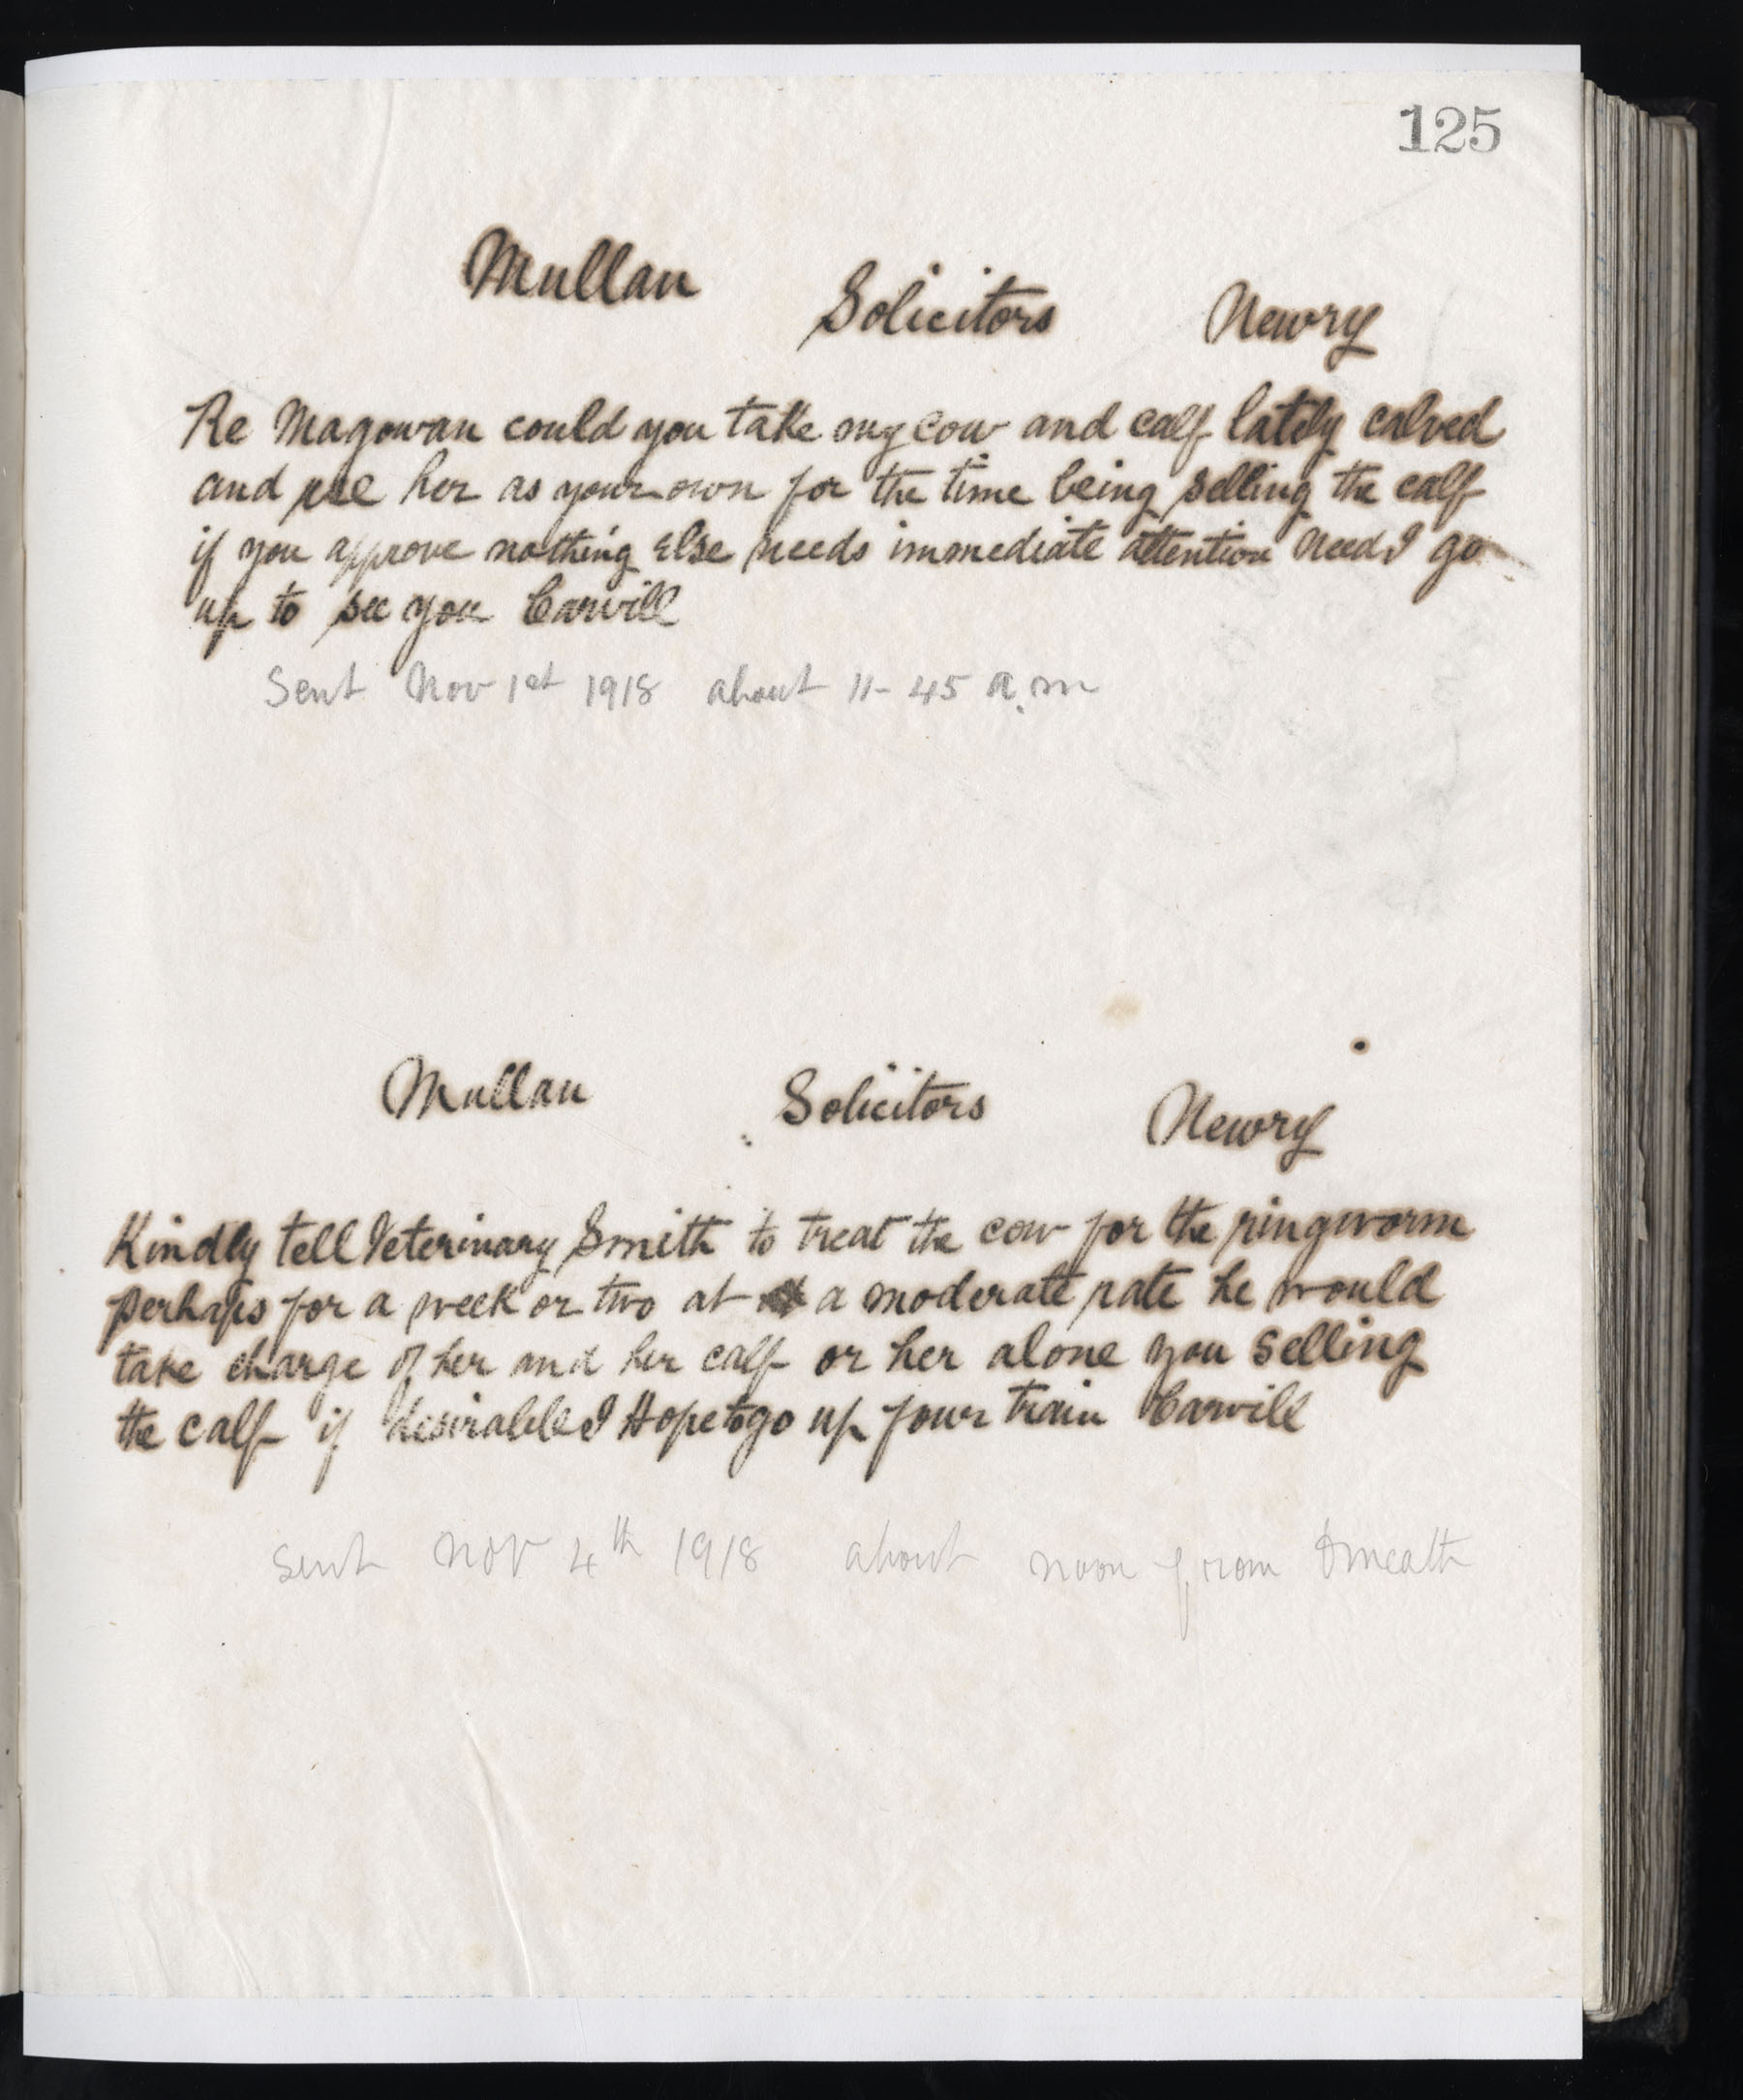 125
Mullan Solicitors Newry
Re Magowan could you take my cow and calf lately calved
and use her as your own for the time being selling the calf
if you approve nothing else needs immediate attention Need I go
up to see you Carvill
Sent Nov 1st 1918 about 11-45 a.m
Mullan Solicitors Newry
Kindly tell Veterinary Smith to treat the cow for the ringworm
perhaps for a week or two at a moderate rate he would
take charge of her and her calf or her alone you selling
the calf if desirable I Hope to go up four train Carvill
sent Nov 4th 1918 about noon from Omeath